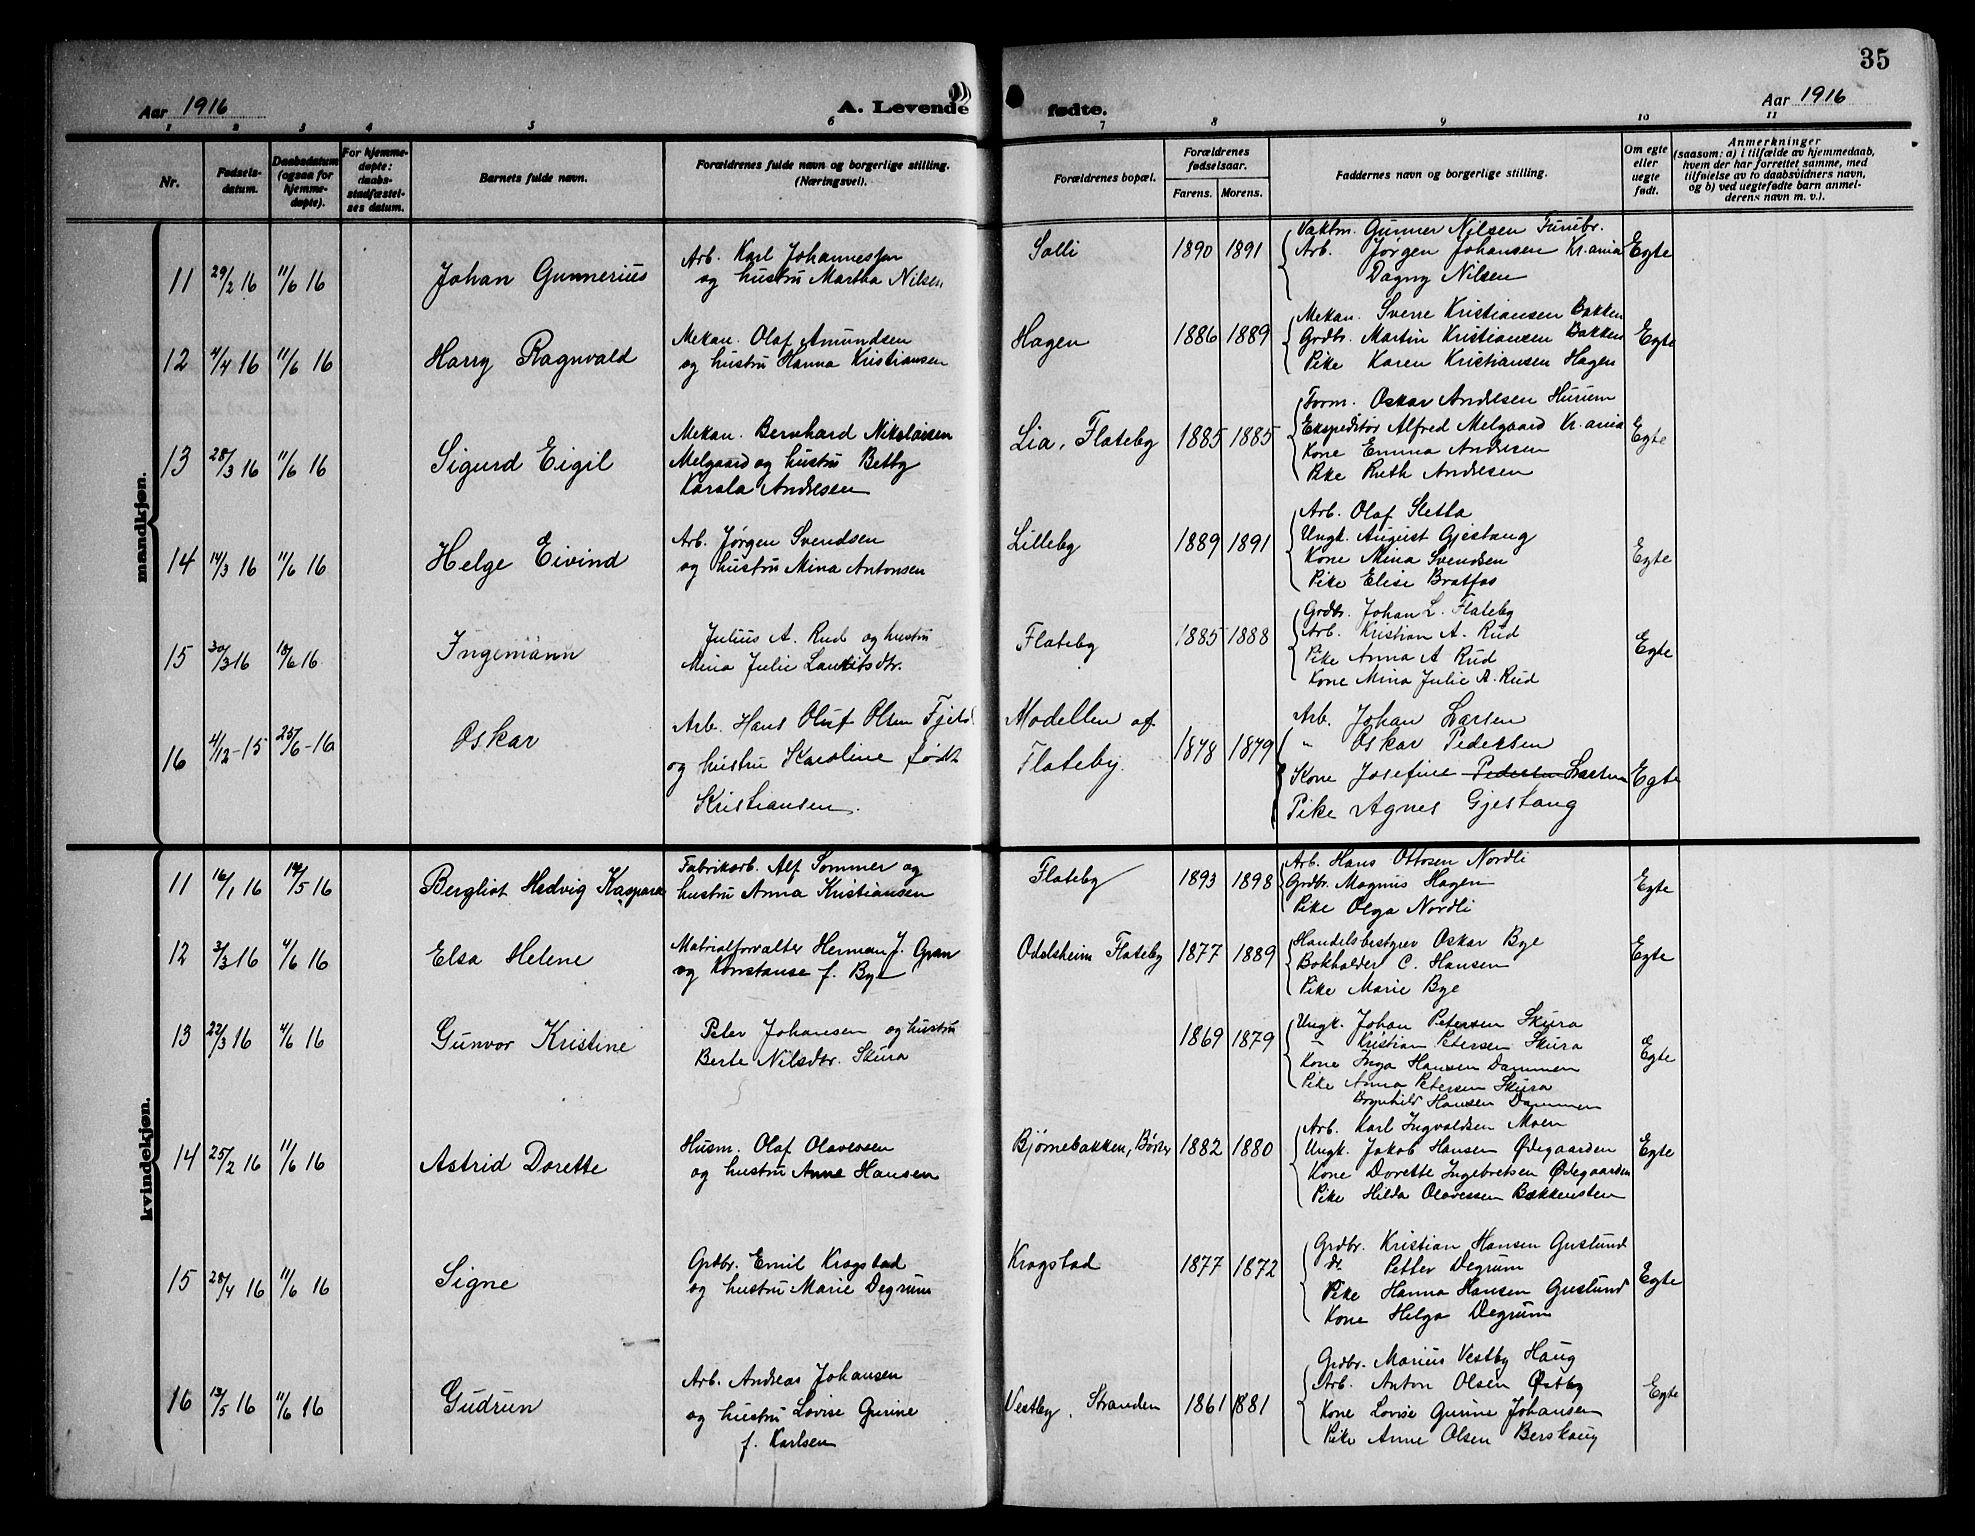 35
Aar 1916
A. Levende fødte.
Aar 1916
1 2 3 4 5 6 7 8 9 10 11
Nr.
Fødsels-
datum.
Daabsdatum
(ogsaa for
hjemme-
døpte).
For hjemme-
døpte:
daabs-
stadfæstel-
ses datum.
Barnets fulde navn.
Forældrenes fulde navn og borgerlige stilling.
(Næringsvei).
Forældrenes bopæl.
Forældrenes
fødselsaar.
Farens. Morens.
Faddernes navn og borgerlige stilling.
Om egte
eller
uegte
født.
Anmerkninger
(saasom: a) i tilfælde av hjemmedaab,
hvem der har forrettet samme, med
tilføielse av to daabsvidners navn,
og b) ved uegtefødte barn anmel-
derens navn m. v.).
mandkjøn.
11 29/2 16 11/6 16 Johan Gunnerius
Arb. Karl Johannessen
og hustru Martha Nilsen
Solli 1890 1891
Vaktm. Gunner Nilsen Furubr.
Arb. Jørgen Johansen Kr.ania
Dagny Nilsen
Egte
12 4/4 16 11/6 16 Harry Ragnvald
Mekan. Olaf Amundsen
og hustru Hanna Kristiansen
Hagen 1886 1889
Mekan. Sverre Kristiansen Bakken
Grdbr. Martin Kristiansen Bakken
Pike Karen Kristiansen Hagen
Egte
13 28/3 16 11/6 16 Sigurd Eigil
Mekan. Bernhard Nikolaisen
Melgaard og hustru Betby
Karala Andresen
Lia, Flateby 1885 1885
Form. Oskar Andresen Hurum
Ekspeditør Alfred Melgaard Kr.ania
Kone Emma Andresen
Pike Ruth Andresen
Egte
14 14/3 16 11/6 16 Helge Eivind
Arb. Jørgen Svendsen
og hustru Mina Antonsen
Lilleby 1889 1891
Arb. Olaf Sletta
Ungk. August Gjestang
Kone Mina Svendsen
Pike Elise Bratfos
Egte
15 30/3 16 18/6 16 Ingemann
Julius A. Rud og hustru
Mina Julie Lauritsdtr.
Flateby 1885 1888
Grdbr. Johan L. Flateby
Arb. Kristian A. Rud
Pike Anna A Rud
Kone Mina Julie A. Rud
Egte
16 4/12-15 25/6-16 Oskar
Arb. Hans Oluf Olsen Fjeld
og hustru Karoline født
Kristiansen.
Modellen af
Flateby.
1878 1879
Arb. Johan Larsen
" Oskar Pedersen
Kone Josefine Pedersen Larsen
Pike Agnes Gjestang
Egte
kvindekjøn.
11 16/1 16 14/5 16 Bergliot Hedvig Kaspara
Fabrikarb. Alf Sommer og
hustru Anna Kristiansen
Flateby 1893 1898
Arb. Hans Ottosen Nordli
Grdbr. Magnus Hagen
Pike Olga Nordli
Egte
12 3/3 16 4/6 16 Elsa Helene
Matrialforvalter Herman J. Gran
og Konstanse f. Bye
Odelsheim Flateby 1877 1889
Handelsbestyrer Oskar Bye
Bokholder C. Hansen
Pike Marie Bye
Egte
13 22/3 16 4/6 16 Gunvor Kristine
Peter Johansen og hustru
Berte Nilsdtr. Skura
1869 1879
Ungk. Johan Petersen Skura
" Kristian Petersen Skura
Kone Inga Hansen Dammen
Pike Anna Petersen Skura
Brynhild Hansen Dammen
Egte
14 25/2 16 11/6 16 Astrid Dorette
Husm. Olaf Olavessen
og hustru Anne Hansen
Bjørnebakken, Børter 1882 1880
Arb. Karl Ingvaldsen Moen
Ungk. Jakob Hansen Ødegaarden
Kone Dorette Ingebretsen Ødegaarden
Pike Hilda Olavessen Bækkensten
Egte
15 28/4 16 11/6 16 Signe
Grdbr. Emil Krogstad
og hustru Marie Degrum
Krogstad 1877 1872
Grdbr. Kristian Hansen Guslund
do. Petter Degrum
Pike Hanna Hansen Guslund
Kone Helga Degrum
Egte
16 13/5 16 11/6 16 Gudrun
Arb. Andreas Johansen
og hustru Lovise Gurine
f. Karlsen
Vestby, Stranden 1861 1881
Grdbr. Marius Vestby Haug
Arb. Anton Olsen Østby
Kone Lovise Gurine Johansen
Pike Anne Olsen Berskaug
Egte